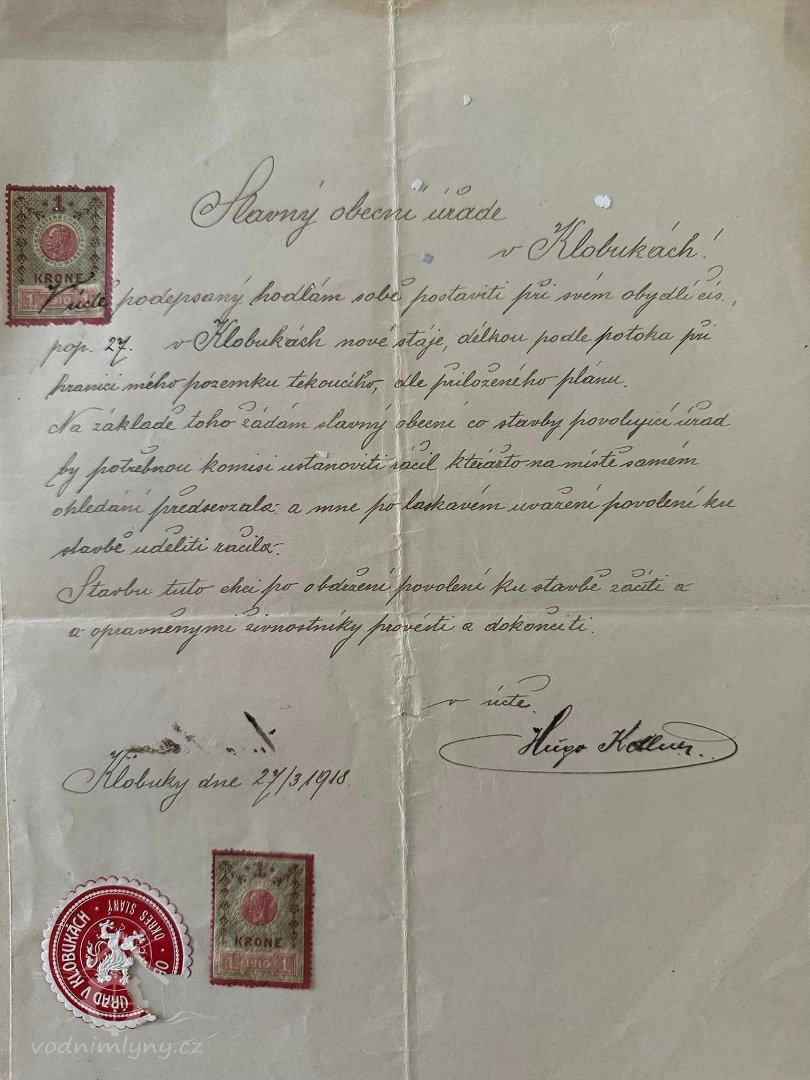 1
KRONE
1 1910 1
Slavný obecní úřade
v Klobukách!
V úctě podepsaný hodlám sobě postaviti při svém obydlí čís.,
pop. 27. v Klobukách nové stáje, délkou podle potoka při
hranici mého pozemku tekoucího, dle přiloženého plánu.
Na základě toho žádám slavný obecní co stavby povolující úřad
by potřebnou komisi ustanoviti ráčil kterážto na místě samém
ohledání předsevzala a mne po laskavém uvážení povolení ku
stavbě uděliti ráčila.
Stavbu tuto chci po obdržení povolení ku stavbě začíti a
a oprávněnými živnostníky provésti a dokončiti.
v úctě
Hugo Kellner.
Klobuky dne 27/3 1918.
1
KRONE
1 1910 1
OB ÚŘAD V KLOBUKÁCH * OKRES SLANÝ *
vodnimlyny.cz